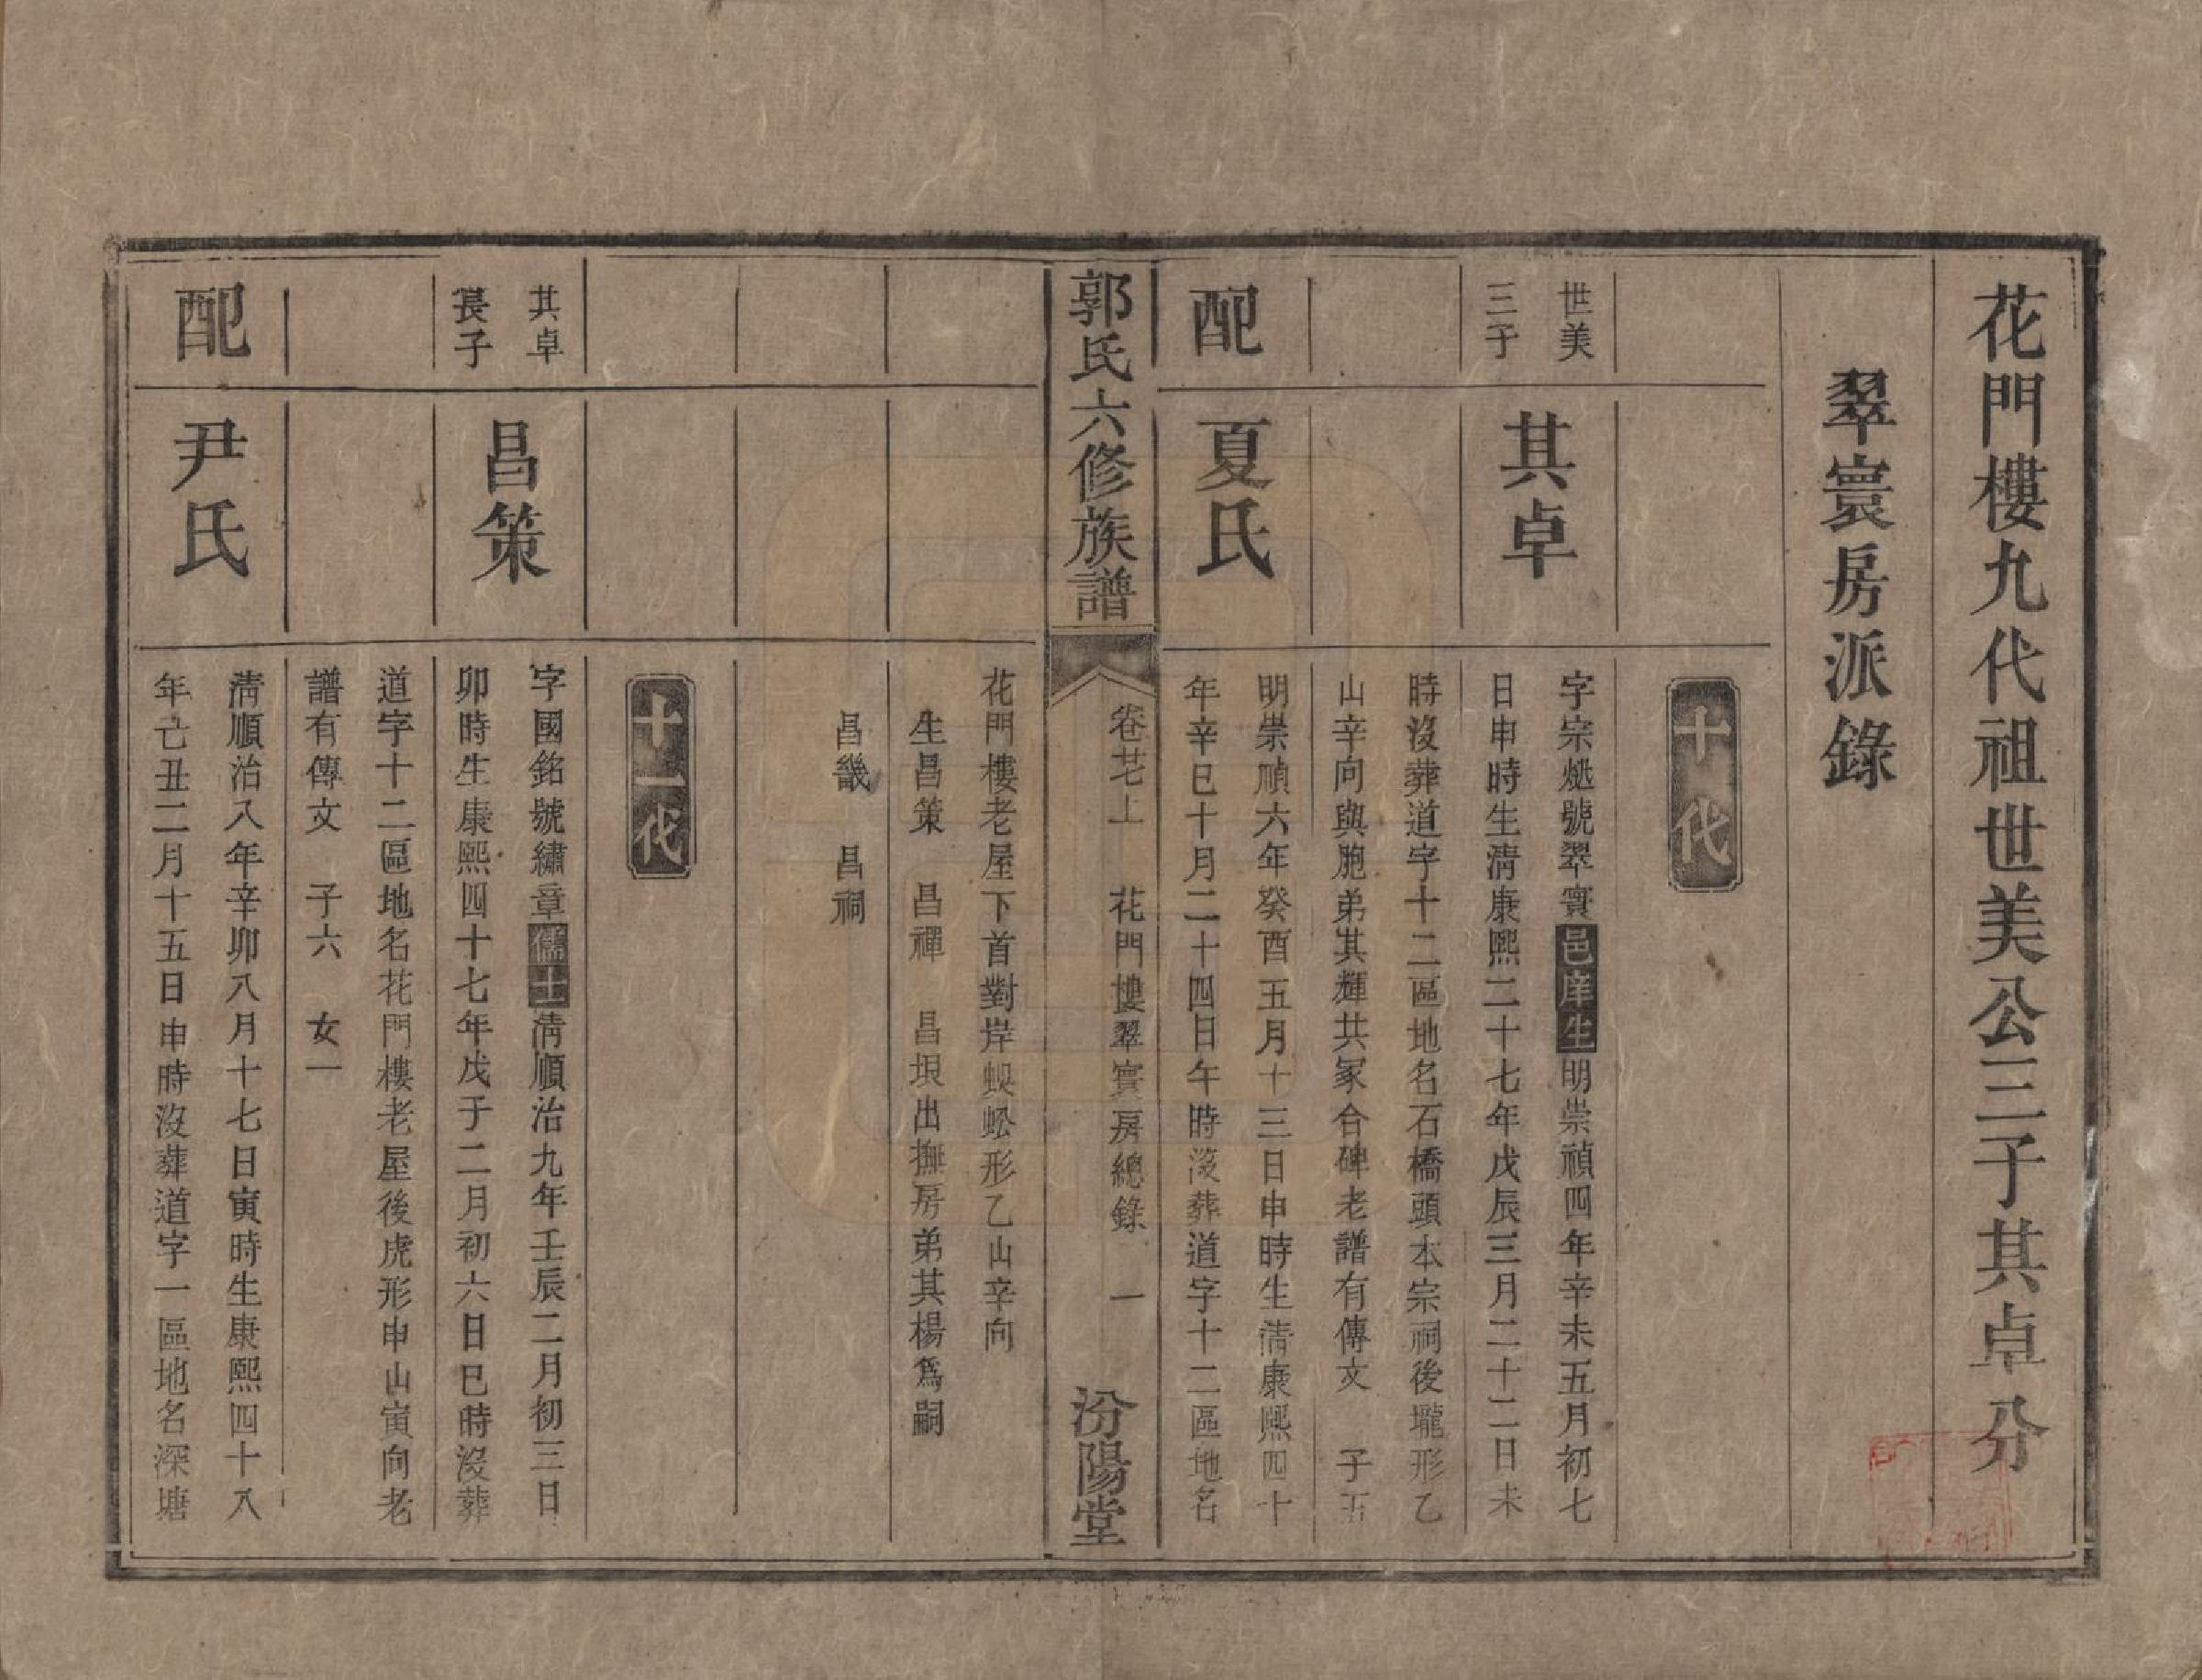 花門樓九代祖世美公三子其卓分
翠寰房派錄
十代
世美
三子
其卓
字宗㷖號翠寰邑庠生明崇禎四年辛未五月初七
日申時生清康熙二十七年戊辰三月二十二日未
時沒葬道字十二區地名石橋頭本宗祠後壠形乙
山辛向與胞弟其輝共冢合碑老譜有傳文 子五
配
夏氏
明崇禎六年癸酉五月十三日申時生清康熙四十
年辛巳十月二十四日午時沒葬道字十二區地名
郭氏六修族譜
卷廿上 花門樓翠寰房總錄 一
汾陽堂
花門樓老屋下首對岸蜈蚣形乙山辛向
生昌策 昌禪 昌垠出撫房弟其楊為嗣
昌畿 昌祠
十一代
其卓
長子
昌策
字國銘號繡章儒士清順治九年壬辰二月初三日
卯時生康熙四十七年戊子二月初六日巳時沒葬
道字十二區地名花門樓老屋後虎形申山寅向老
譜有傳文 子六 女一
配
尹氏
清順治八年辛卯八月十七日寅時生康熙四十八
年己丑二月十五日申時沒葬道字一區地名深塘